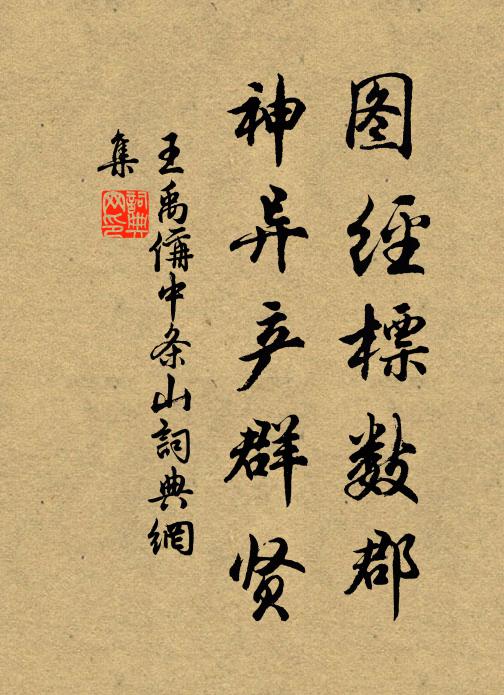 图经標数郡
神异产群贤
王禹偁中条山詞典網
集
詞典
网印